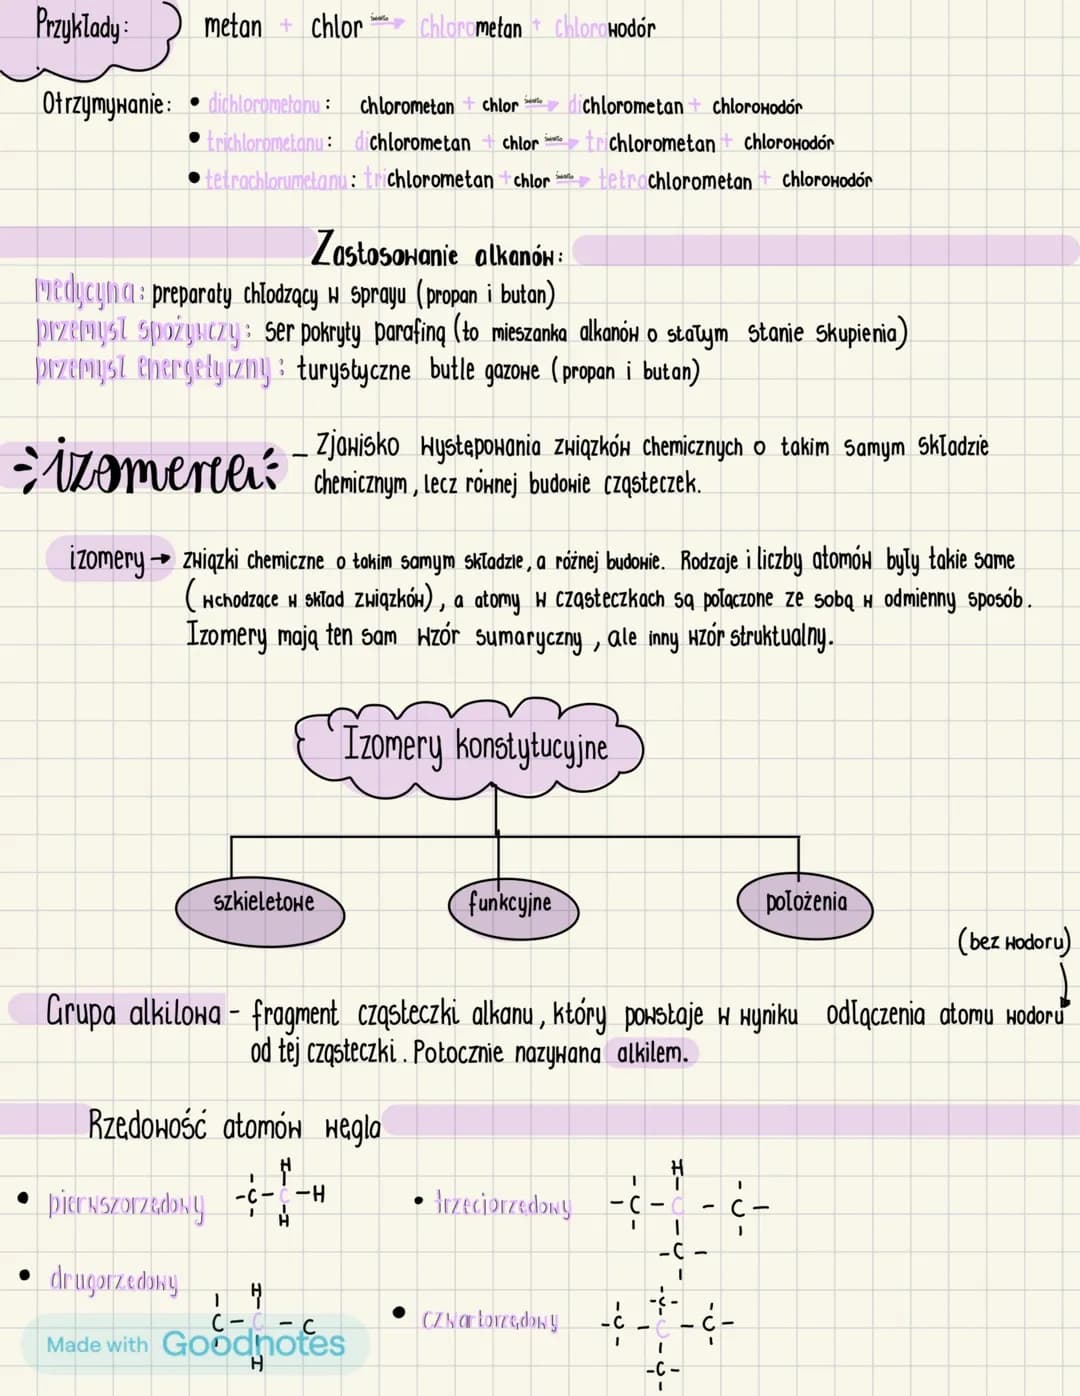 Przykłady: metan + chlor światło→ chlorometan + chlorowodór
Otrzymywanie: • dichlorometanu: chlorometan + chlor światło→ dichlorometan + chlorowodór
• trichlorometanu: dichlorometan + chlor światło→ trichlorometan + chlorowodór
• tetrachlorumetanu: trichlorometan + chlor światło→ tetrachlorometan + chlorowodór
Zastosowanie alkanów:
medycyna: preparaty chłodzący w sprayu (propan i butan)
przemysł spożywczy: ser pokryty parafiną (to mieszanka alkanów o stałym stanie skupienia)
przemysł energetyczny: turystyczne butle gazowe (propan i butan)
izomeria – Zjawisko występowania związków chemicznych o takim samym składzie
chemicznym, lecz równej budowie cząsteczek.
izomery → związki chemiczne o takim samym składzie, a różnej budowie. Rodzaje i liczby atomów były takie same
(wchodzące w skład związków), a atomy w cząsteczkach są połączone ze sobą w odmienny sposób.
Izomery mają ten sam wzór sumaryczny, ale inny wzór struktualny.
Izomery konstytucyjne
szkieletowe funkcyjne położenia
(bez wodoru)
Grupa alkilowa - fragment cząsteczki alkanu, który powstaje w wyniku odłączenia atomu wodoru
od tej cząsteczki. Potocznie nazywana alkilem.
Rzędowość atomów węgla
H H
• pierwszorzędowy -C-C-H • trzeciorzędowy -C-C-C-
H
-C-
• drugorzędowy H -C-
C-C-C • czwartorzędowy -C-C-C-
Made with Goodnotes
H -C-